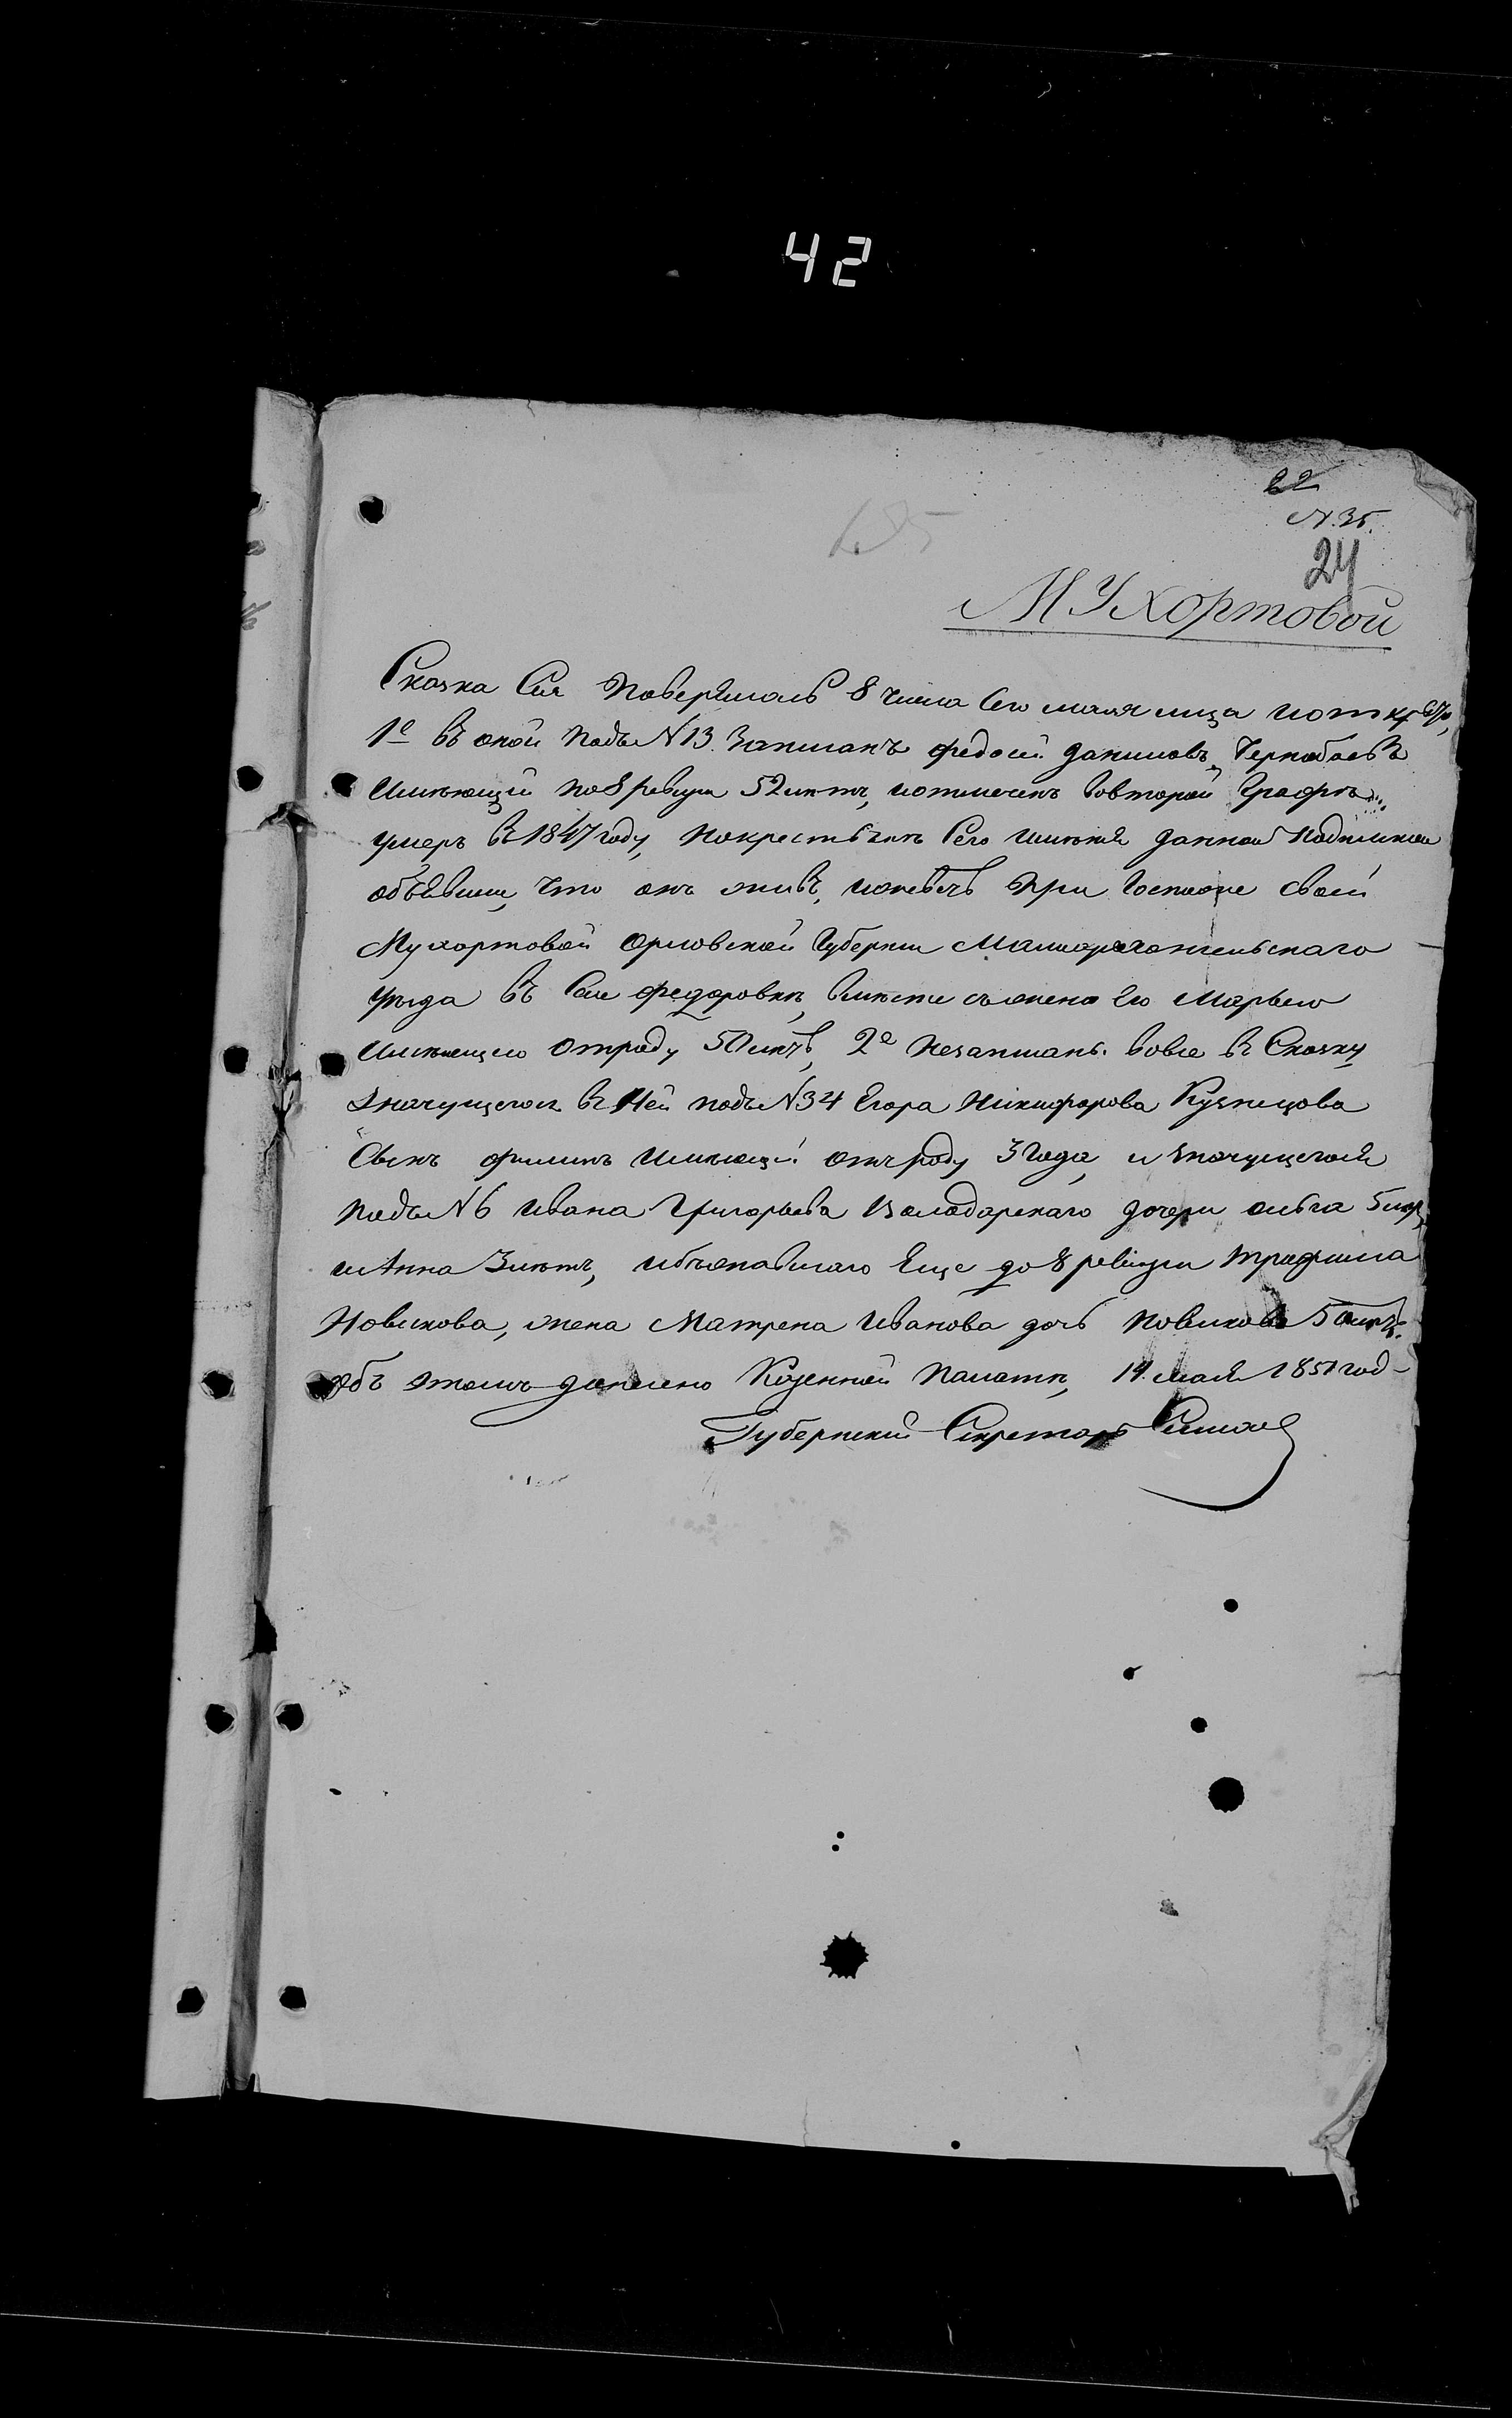 42
22
N. 35.
24
МУхортовой
Сказка Сия Поверялась 8 числа Сего маия м͠ца
1е въ оной Подъ N 13 Записанъ федосій даниловъ Чернобаевъ
Имѣющій по 8 ревизіи 52 лѣтъ, иотмеченъ Вовторой Графѣ
умеръ въ 1847 году, Нокрестьяне Сего имѣния данной Подпиской
объявили, что онъ живъ, При Госпоже Своей
Мухортовой Орловской Губерніи Малоархангельскаго
уезда въ Селе федоровке, вместе съженою Его Марьею
Имѣющею Отроду 50 лѣтъ, 2е Незаписанъ вовсе въ Сказку
Значущегося въ Ней подъ N 34 Егора Никифорова Кузнецова
Сынъ филипъ Имѣющій отъ роду 3 Года, и Значущегося
Подъ N 6 Ивана Григорьева Володарскаго дочери ольга 5 лѣтъ,
и Анна 3 лѣтъ, ибежавшаго Еще до 8 ревизіи Трафима
Новикова, жена Матрена Иванова дочь Новикова 50 лѣтъ.
Объ этомъ донесено Козенной Палатѣ, 14. Мая 1851 год
Губернскій Секретарь